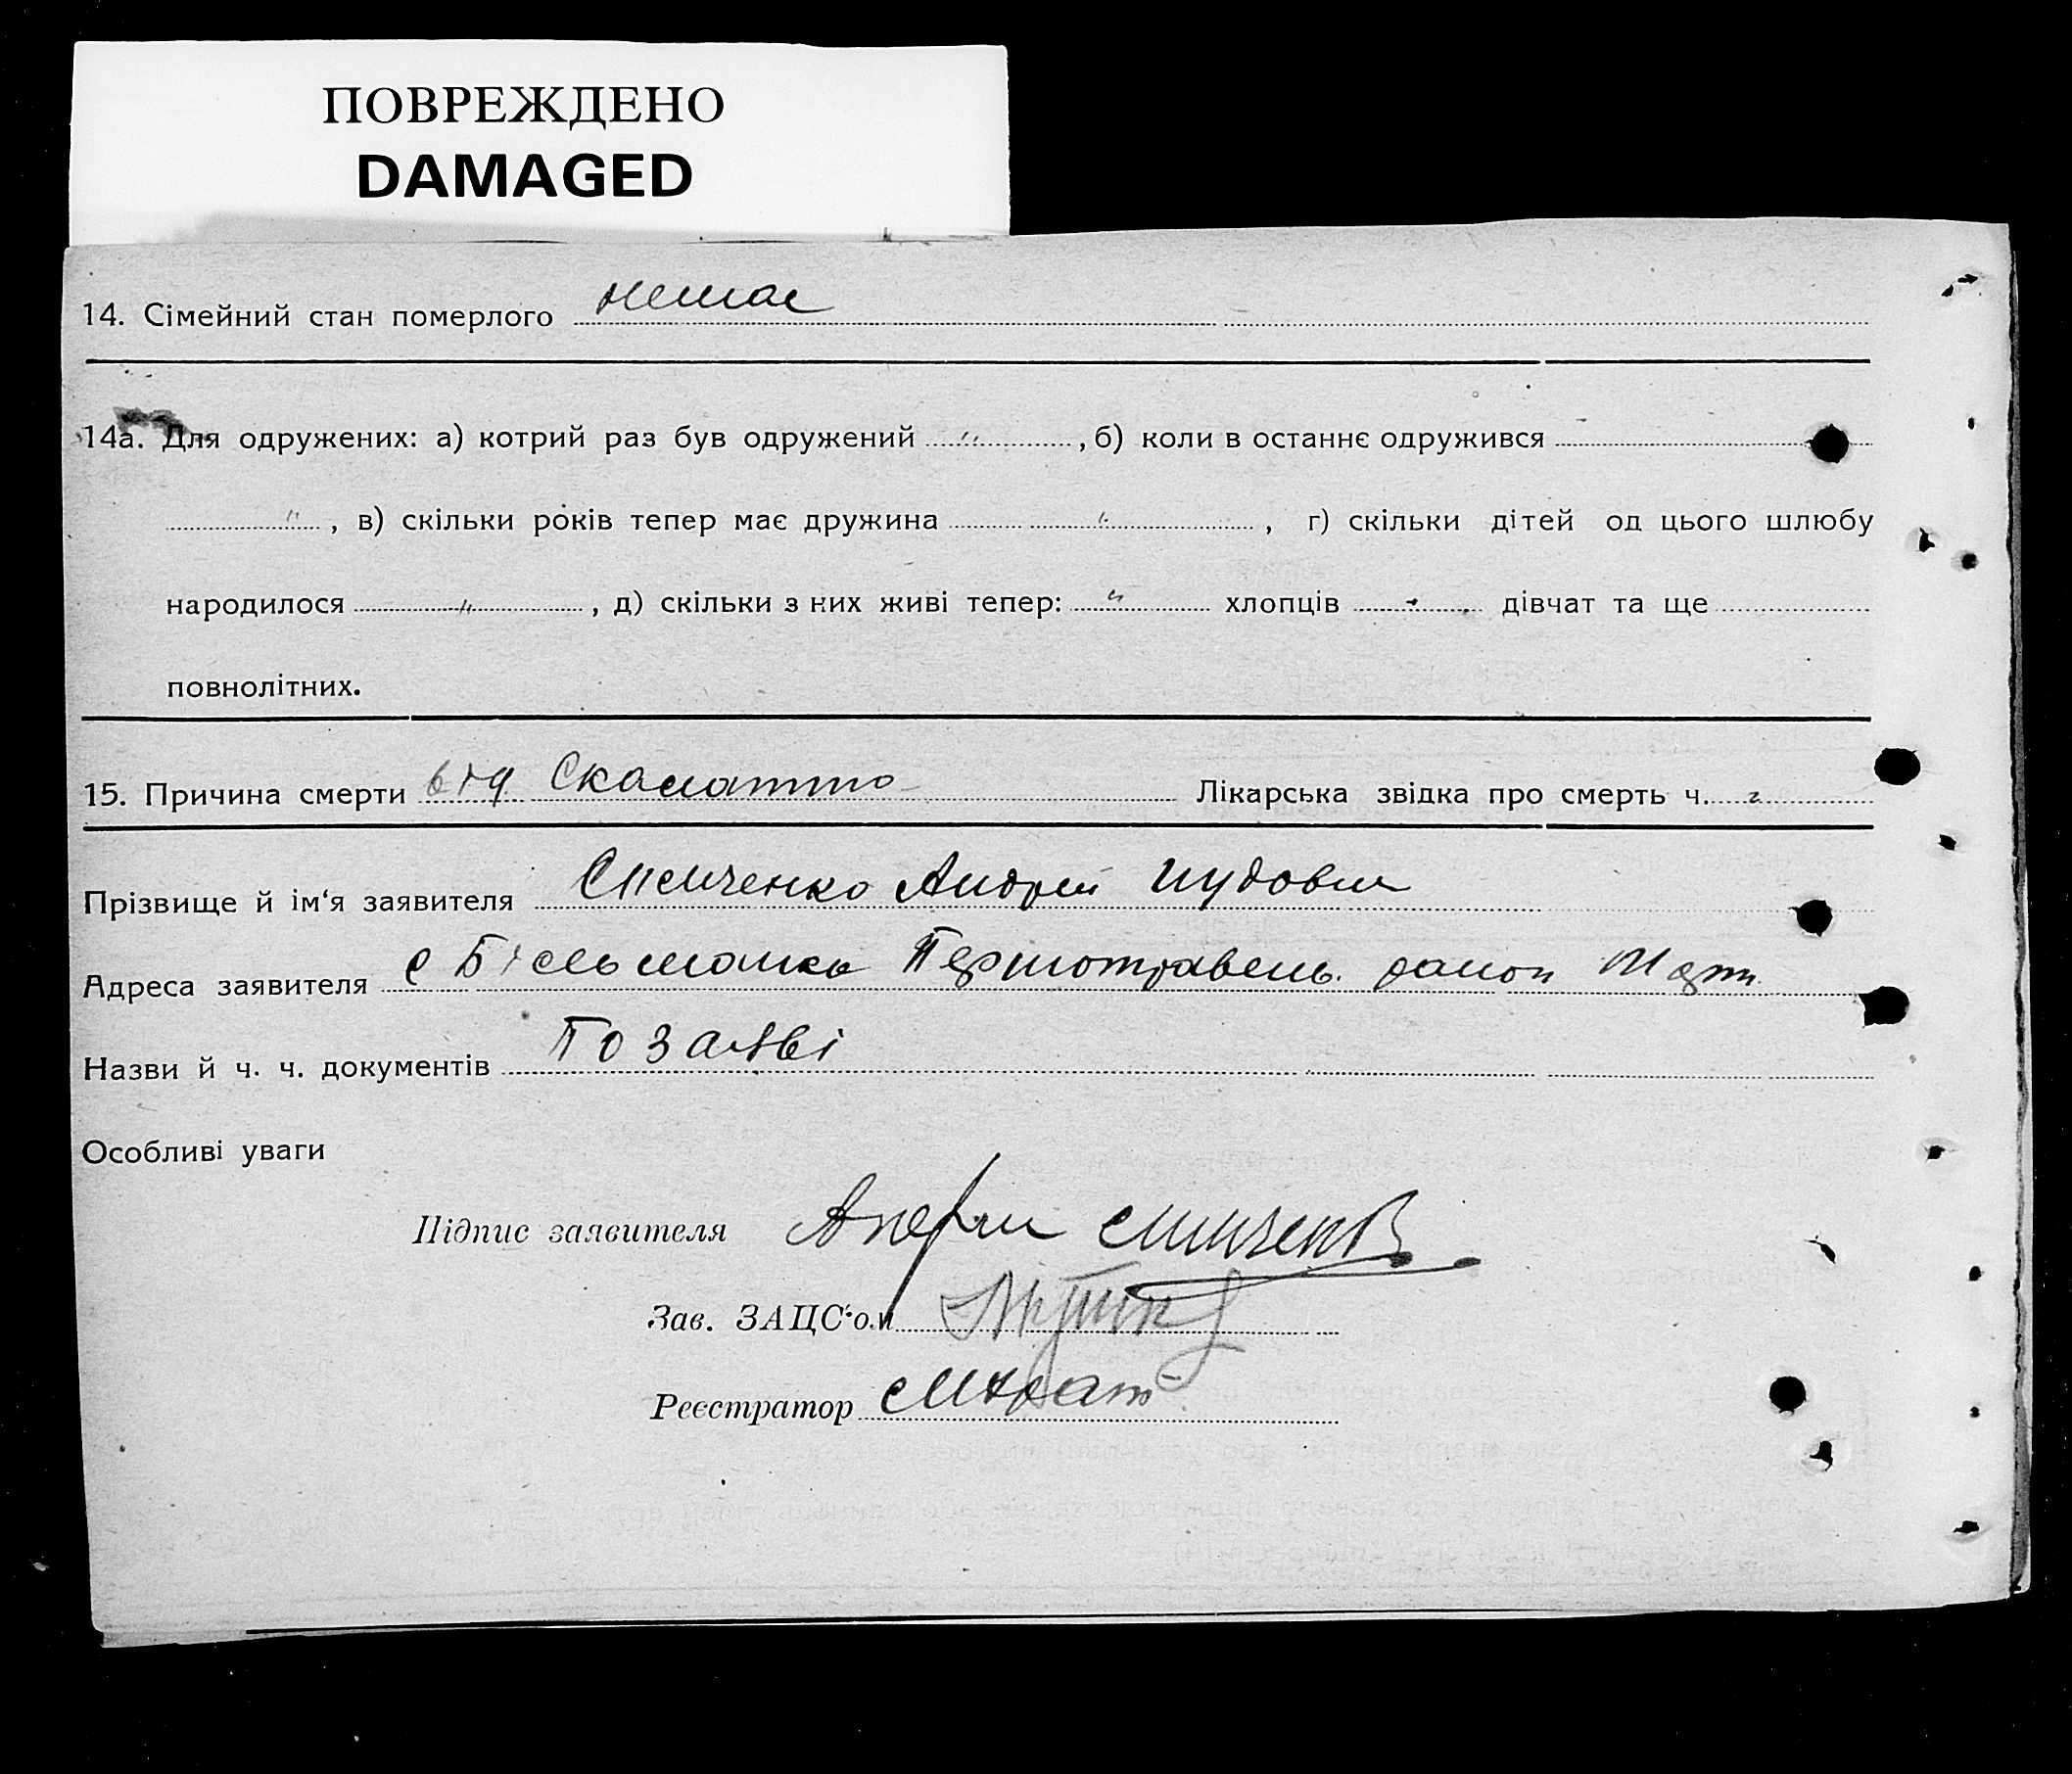 ПОВРЕЖДЕНО
DAMAGED
14. Сімейний стан померлого немає
14а. Для одружених: а) котрий раз був одружений " , б) коли в останнє одружився
" , в) скільки років тепер має дружина " , г) скільки дітей од цього шлюбу
народилося " , д) скільки з них живі тепер: " хлопців " дівчат та ще
повнолітних.
15. Причина смерти від Лікарська звідка про смерть ч.
Прізвище й ім'я заявителя Андрій
Адреса заявителя с Більманка район
Назви й ч. ч. документів По заяві
Особливі уваги
Підпис заявителя
Зав. ЗАЦС'ом
Реєстратор